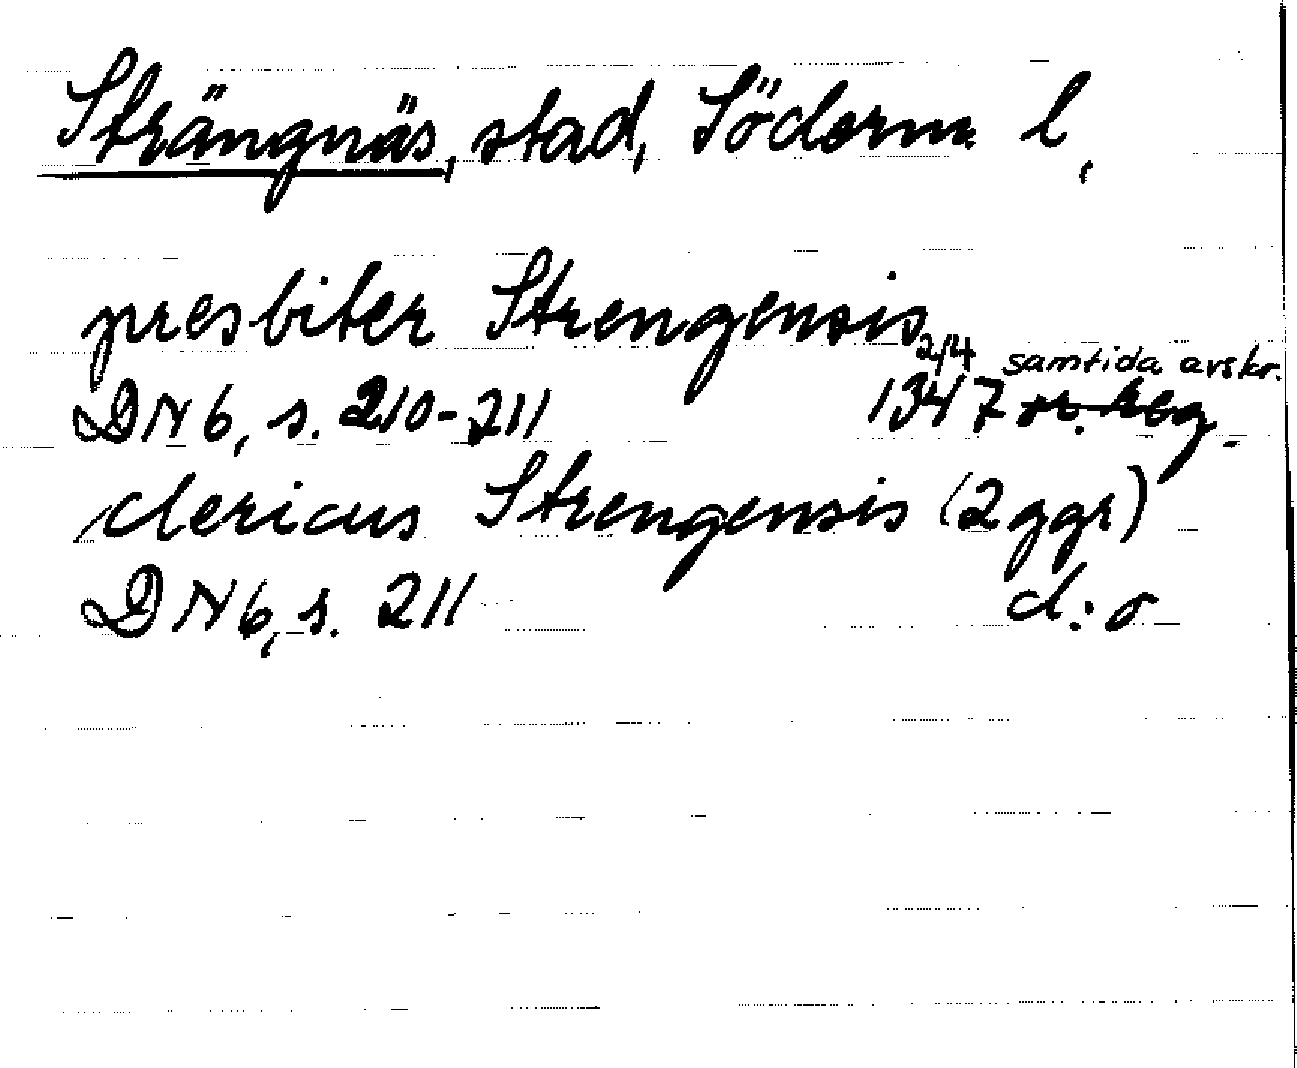 Strängnäs, stad, Söderm. l.
presbiter Strengensis
2/4 samtida avskr.
DN 6, s. 210-211 1347 or. beg.
clericus Strengensis (2 ggr)
DN 6, s. 211 d:o